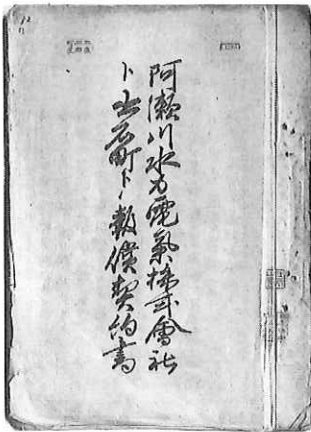 阿瀬川水力電氣株式會社
ト出石町トノ報償契約書